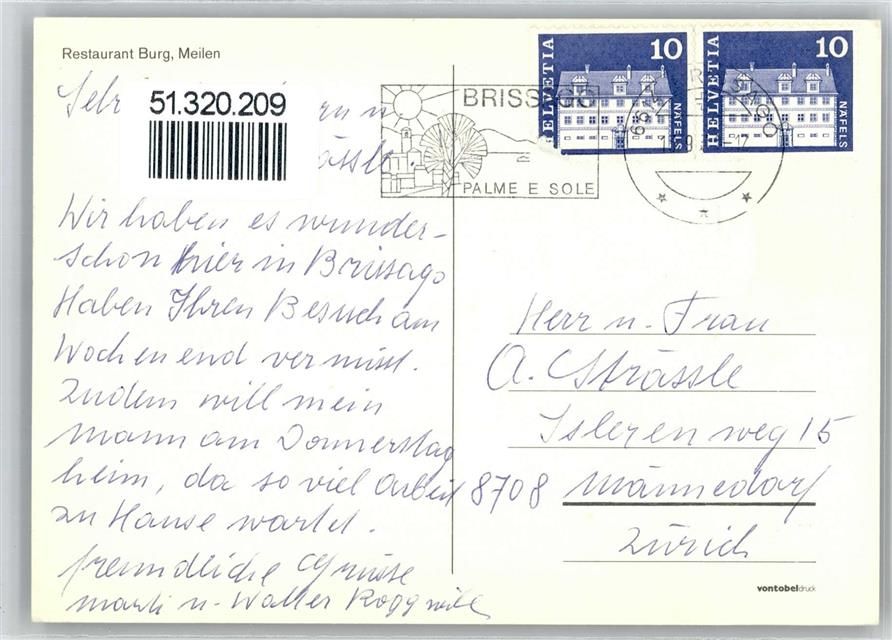 Restaurant Burg, Meilen
51.320.209
Sehr
Wir haben es wunder-
schön hier in Brissago
Haben Ihren Besuch am
Wochenend vermisst.
Zudem will mein
Mann am Donnerstag
heim, da so viel Arbeit
zu Hause wartet.
freundliche Grüsse
u. Walter
BRISSAGO
PALME E SOLE
HELVETIA 10 NÄFELS
HELVETIA 10 NÄFELS
Herr u. Frau
A. Strässle
Islerenweg 15
8708 Männedorf
Zürich
vontobeldruck